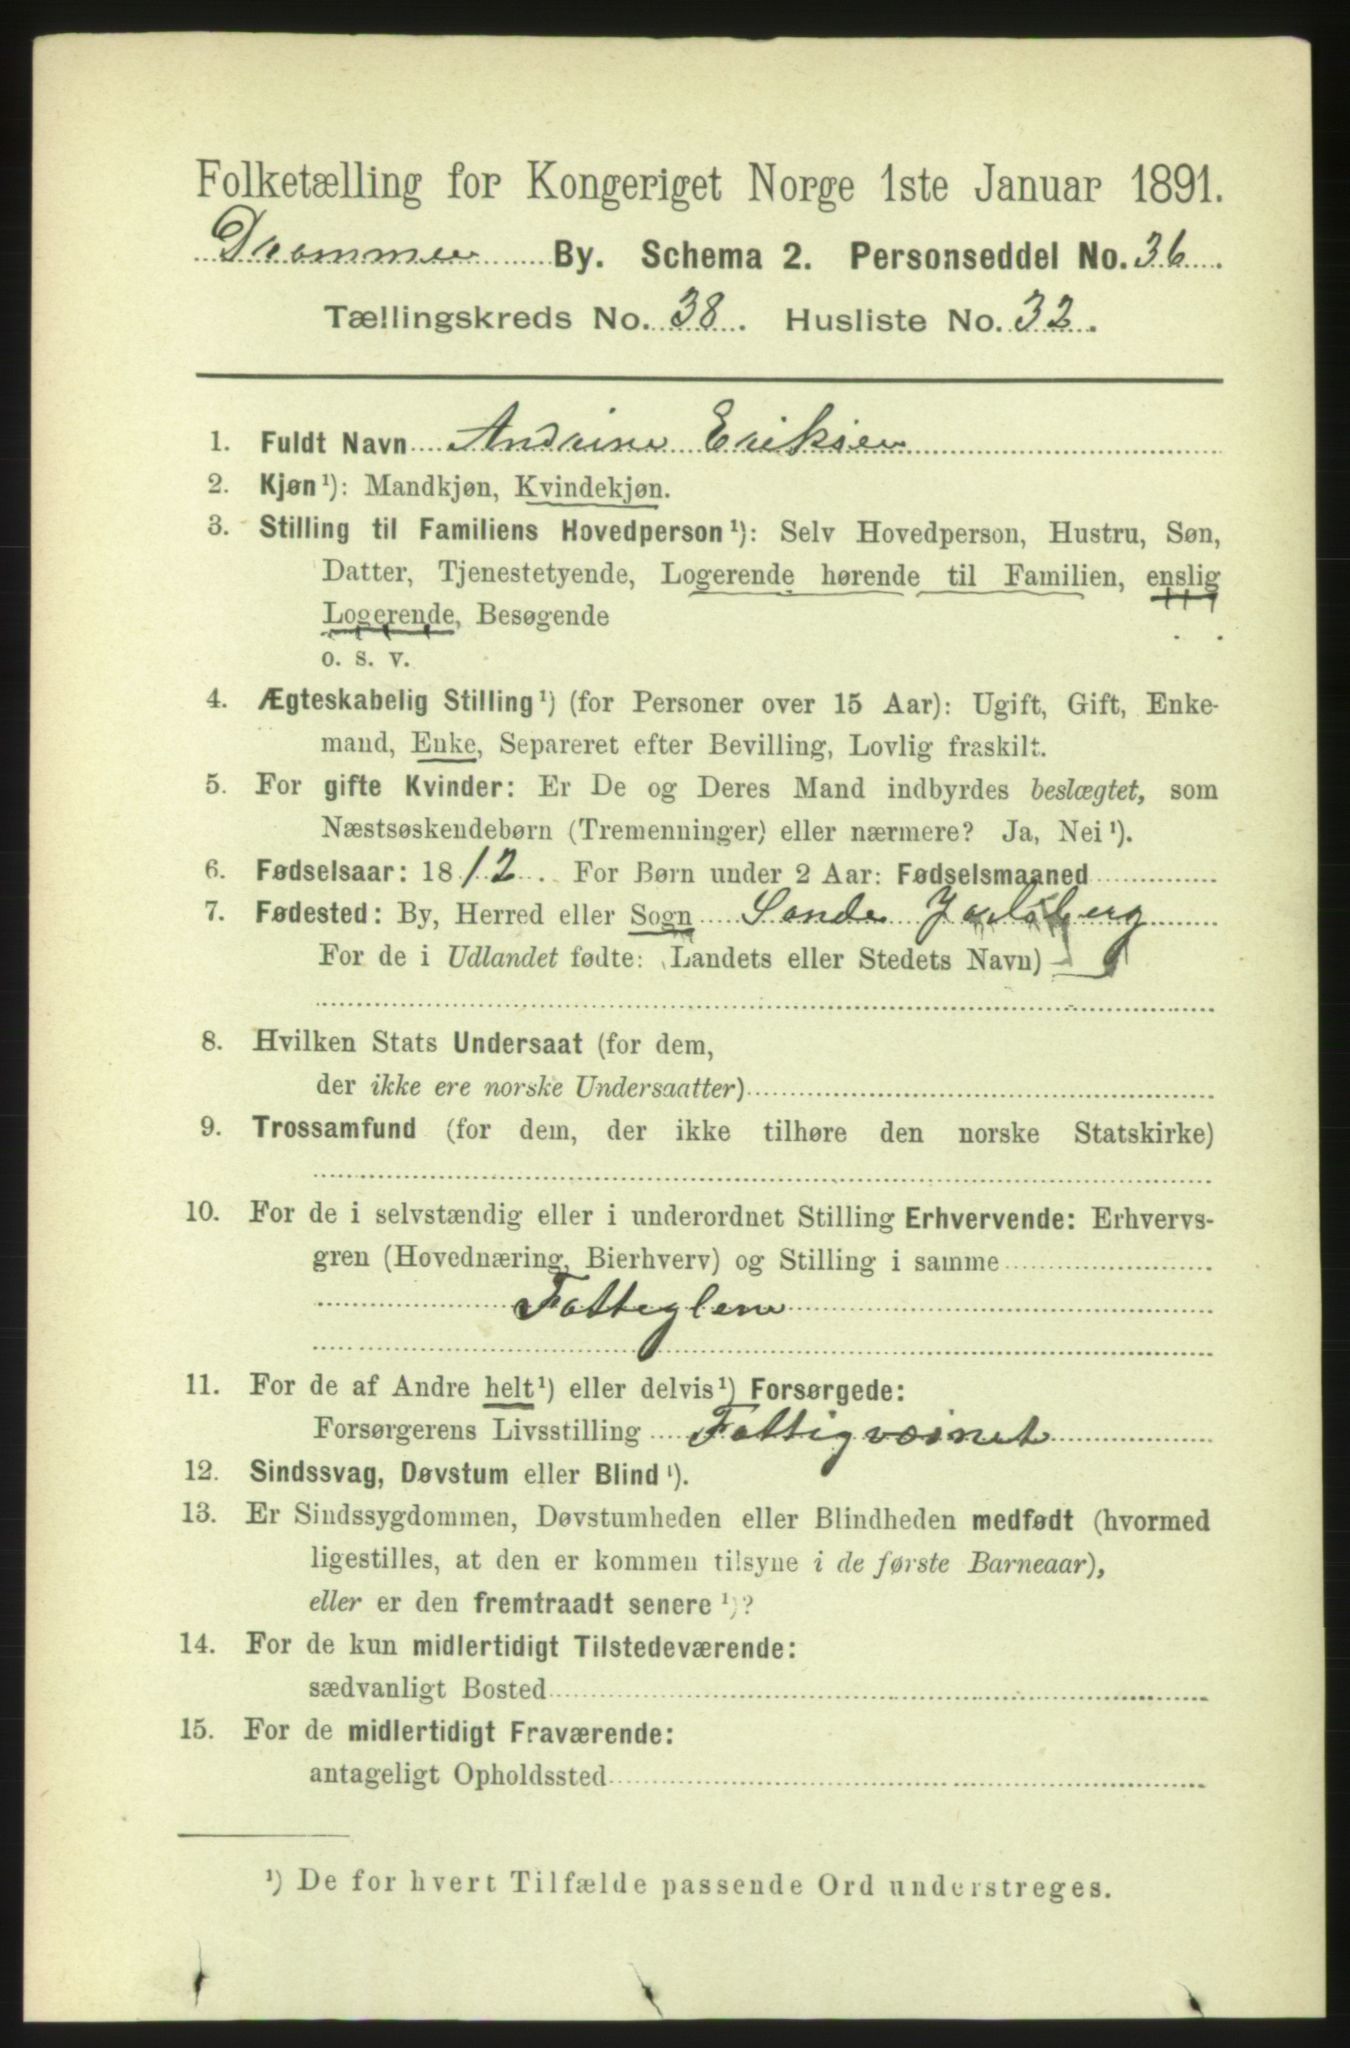 Folketælling for Kongeriget Norge 1ste Januar 1891.
Drammen By. Schema 2. Personseddel No. 36
Tællingskreds No. 38. Husliste No. 32.
1. Fuldt Navn Andrine Eriksen
2. Kjøn¹): Mandkjøn, Kvindekjøn.
3. Stilling til Familiens Hovedperson¹): Selv Hovedperson, Hustru, Søn,
Datter, Tjenestetyende, Logerende hørende til Familien, enslig
Logerende, Besøgende
o. s. v.
4. Ægteskabelig Stilling¹) (for Personer over 15 Aar): Ugift, Gift, Enke-
mand, Enke, Separeret efter Bevilling, Lovlig fraskilt.
5. For gifte Kvinder: Er De og Deres Mand indbyrdes beslægtet, som
Næstsøskendebørn (Tremenninger) eller nærmere? Ja, Nei¹).
6. Fødselsaar: 1812. For Børn under 2 Aar: Fødselsmaaned
7. Fødested: By, Herred eller Sogn Sande Jarlsberg
For de i Udlandet fødte: (Landets eller Stedets Navn)
8. Hvilken Stats Undersaat (for dem,
der ikke ere norske Undersaatter)
9. Trossamfund (for dem, der ikke tilhøre den norske Statskirke)
10. For de i selvstændig eller i underordnet Stilling Erhvervende: Erhvervs-
gren (Hovednæring, Bierhverv) og Stilling i samme
Fattiglem
11. For de af Andre helt¹) eller delvis¹) Forsørgede:
Forsørgerens Livsstilling Fattigvæsnet
12. Sindssvag, Døvstum eller Blind¹).
13. Er Sindssygdommen, Døvstumheden eller Blindheden medfødt (hvormed
ligestilles, at den er kommen tilsyne i de første Barneaar),
eller er den fremtraadt senere¹)?
14. For de kun midlertidigt Tilstedeværende:
sædvanligt Bosted
15. For de midlertidigt Fraværende:
antageligt Opholdssted
¹) De for hvert Tilfælde passende Ord understreges.